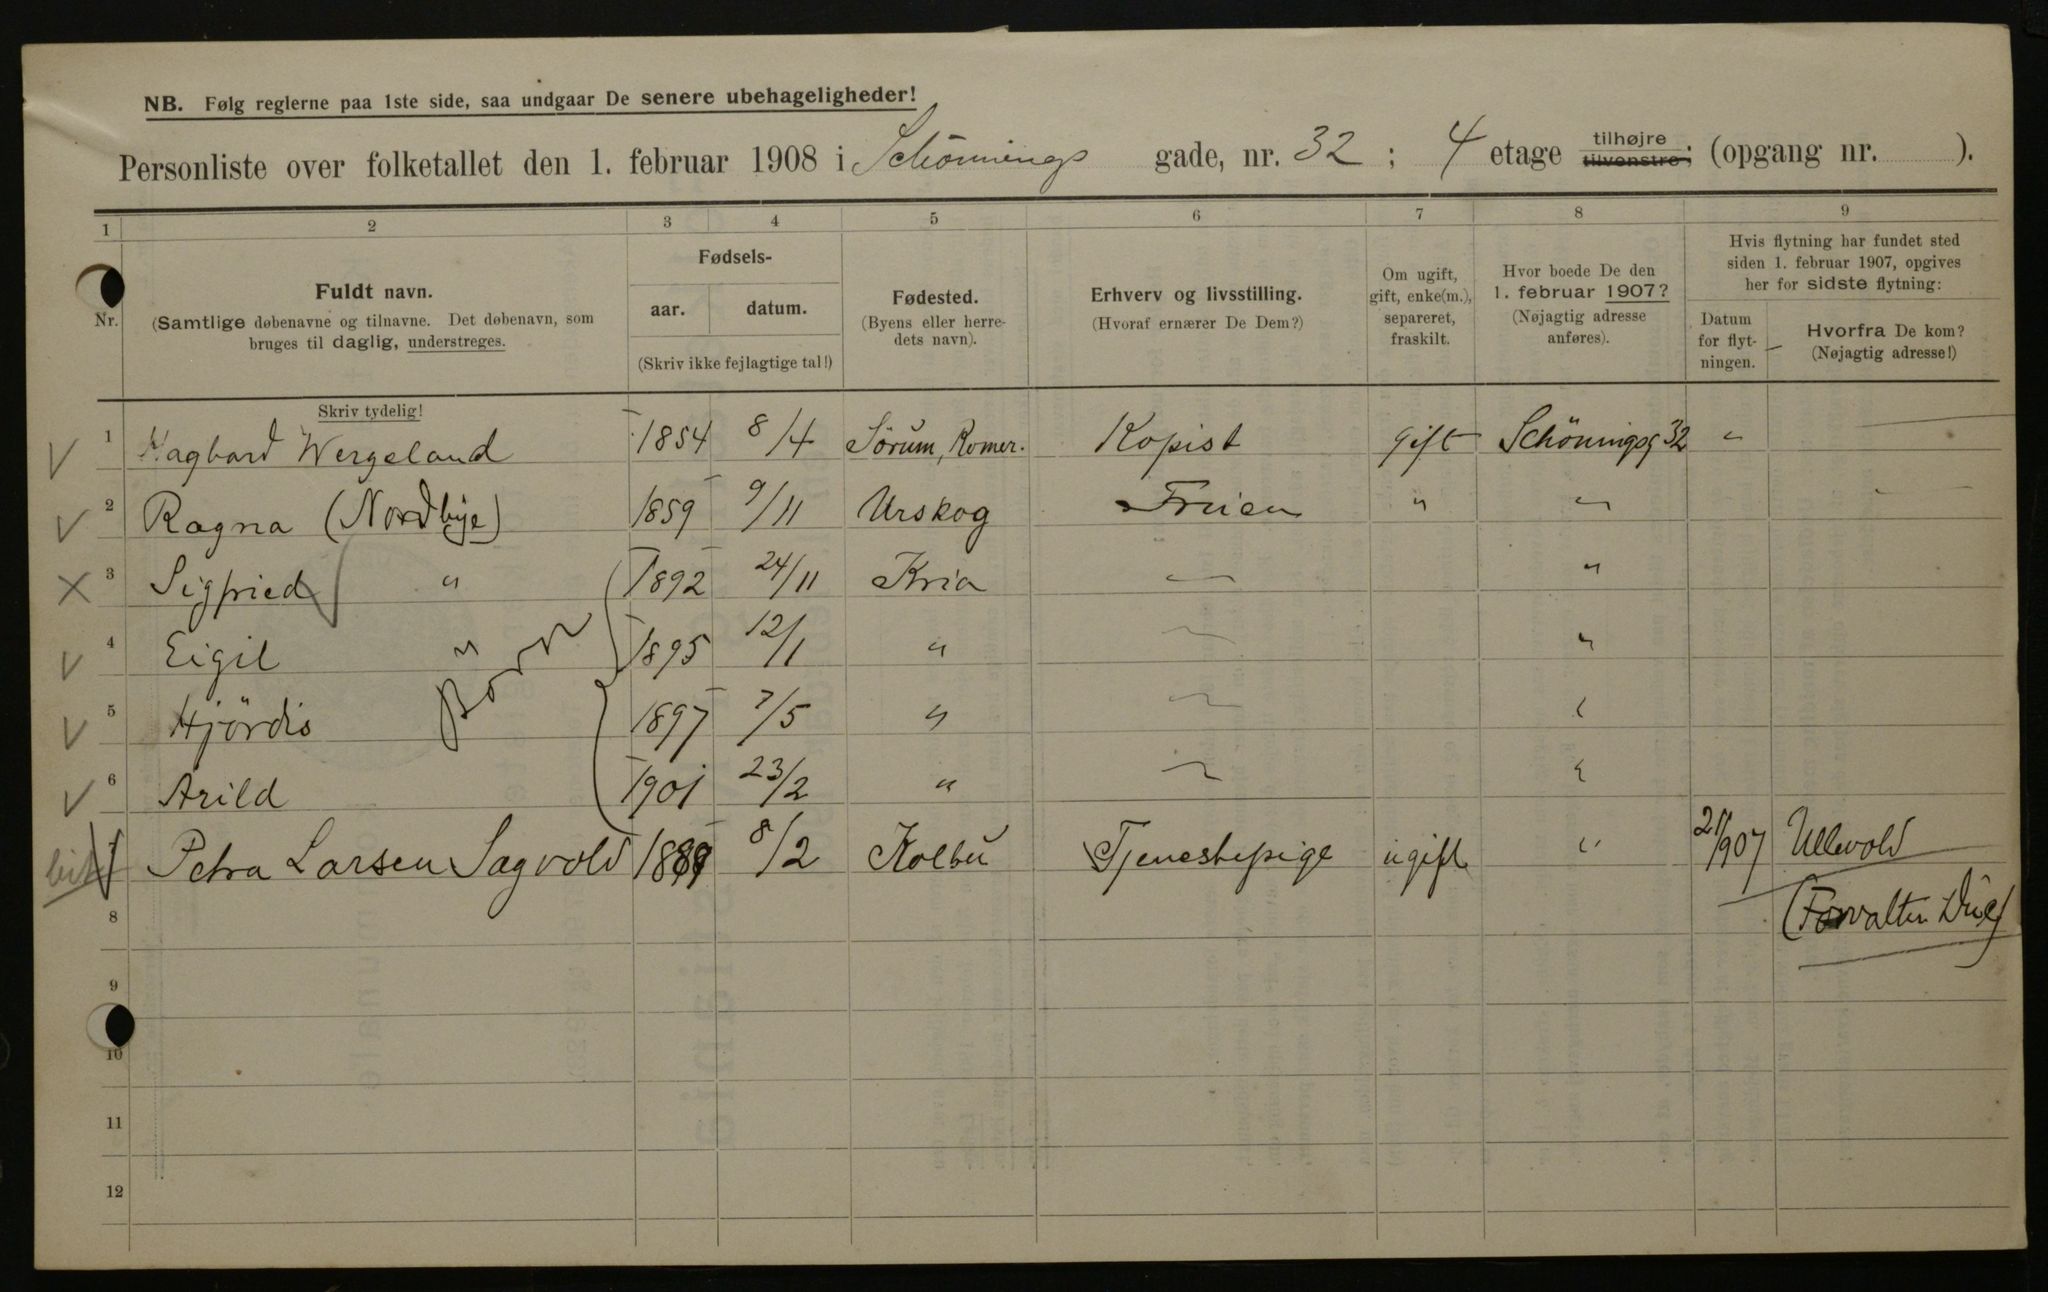 NB. Følg reglerne paa 1ste side, saa undgaar De senere ubehageligheder!
Personliste over folketallet den 1. februar 1908 i Schönnings gade, nr. 32 ; 4 etage tilhøjre tilvenstre; (opgang nr. ).
1 2 3 4 5 6 7 8 9
Nr.
Fuldt navn.
(Samtlige døbenavne og tilnavne. Det døbenavn, som
bruges til daglig, understreges.
Skriv tydelig!
Fødsels-
aar. datum.
(Skriv ikke fejlagtige tal!)
Fødested.
(Byens eller herre-
dets navn).
Erhverv og livsstilling.
(Hvoraf ernærer De Dem?)
Om ugift,
gift, enke(m.),
separeret,
fraskilt.
Hvor boede De den
1. februar 1907?
(Nøjagtig adresse
anføres).
Hvis flytning har fundet sted
siden 1. februar 1907, opgives
her for sidste flytning:
Datum
for flyt-
ningen.
Hvorfra De kom?
(Nøjagtig adresse!)
1 Hagbard Wergeland 1854 8/4 Sörum, Romer. Kopist gift Schöningsg 32 "
2 Ragna (Nordbye) 1859 9/11 Urskog Fruen " "
3 Sigfried " 1892 24/11 Kria "
4 Eigil " 1895 12/1 " "
Børn
5 Hjördis 1897 7/5 " "
6 Arild 1901 23/2 " "
7 Petra Larsen Sagvold 1889 8/2 Kolbu Tjenestepige ugift " 21/907 Ullevold
8 (Forvalter
9
10
11
12